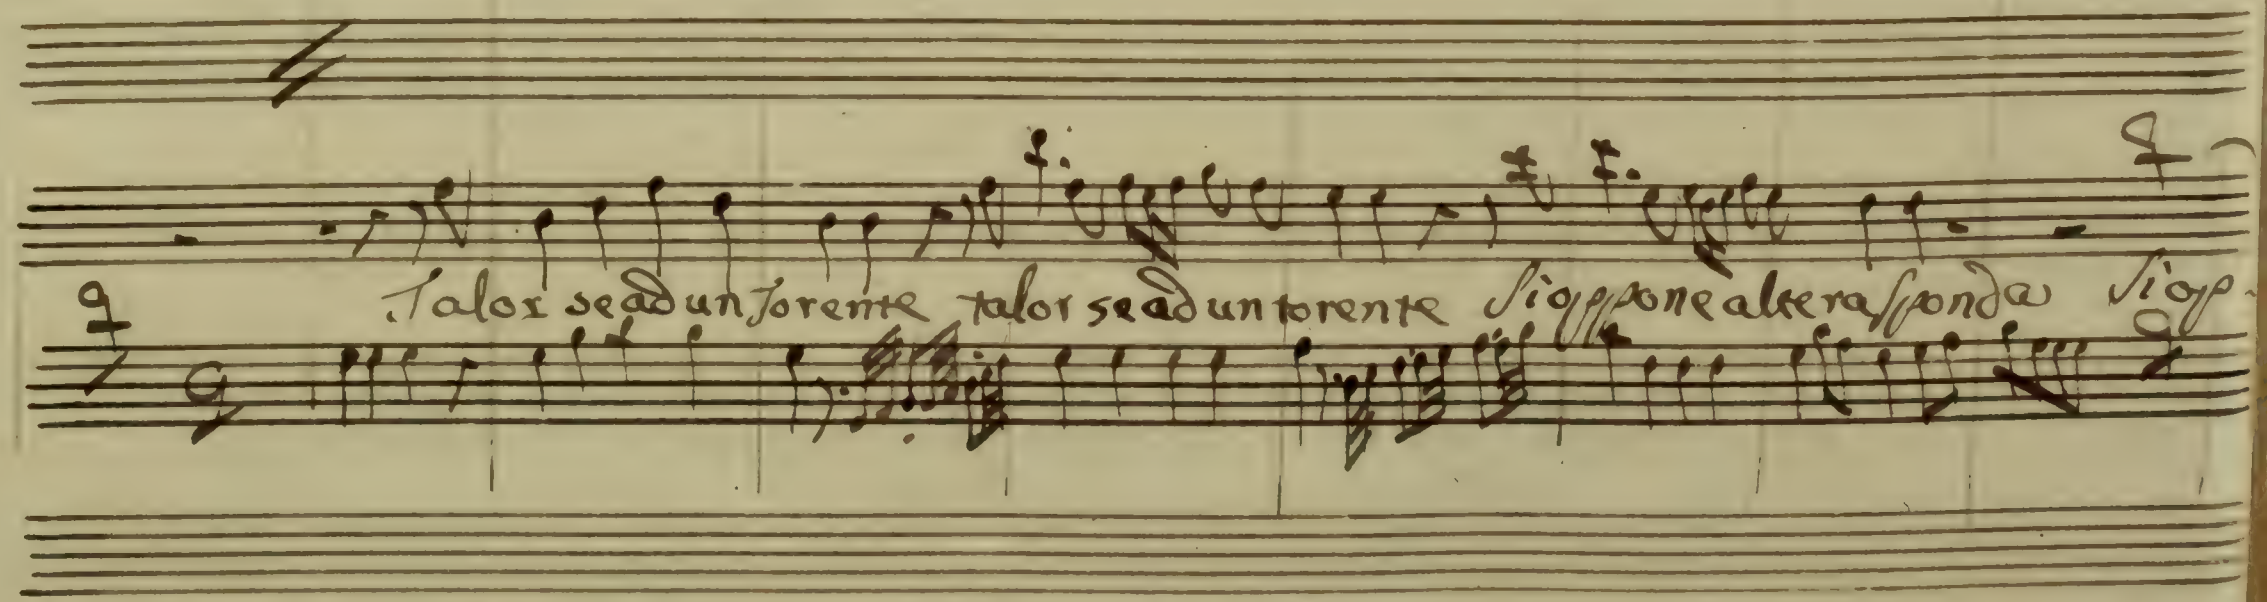 Talor se ad un Torente talor se ad un torente Si oppone altera sponda Si opp